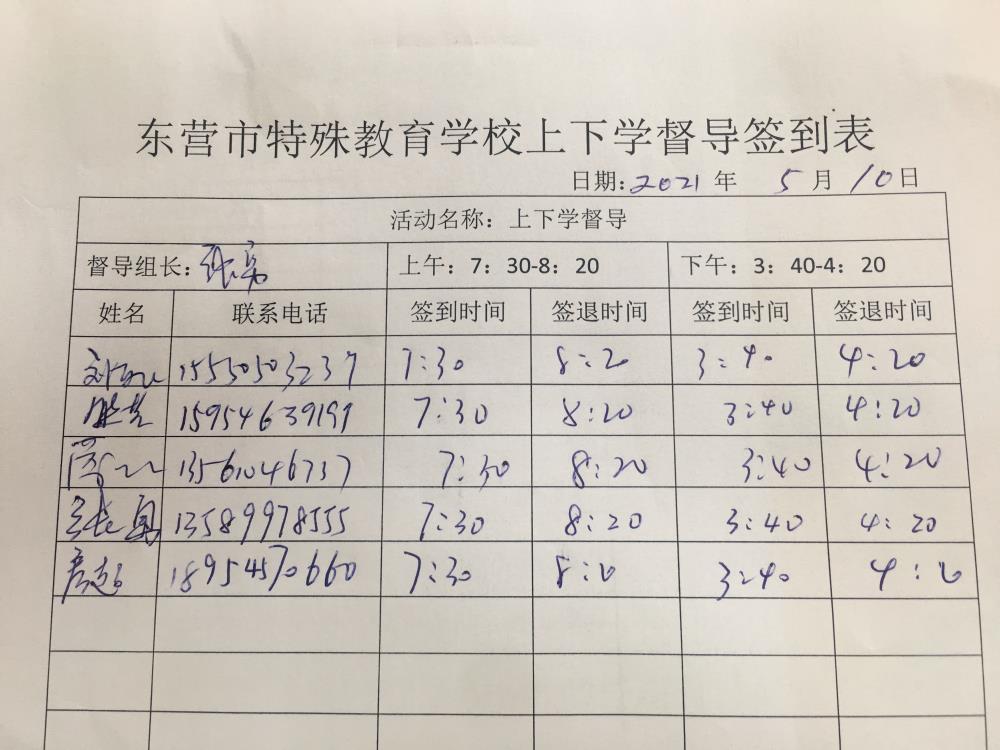 东营市特殊教育学校上下学督导签到表
日期:2021年 5月10日
活动名称：上下学督导
督导组长: 上午：7：30-8：20 下午：3：40-4：20
姓名 联系电话 签到时间 签退时间 签到时间 签退时间
15550503237 7:30 8:20 3:40 4:20
15954639199 7:30 8:20 3:40 4:20
13561046737 7:30 8:20 3:40 4:20
13589978555 7:30 8:20 3:40 4:20
18954570660 7:30 8:20 3:40 4:20